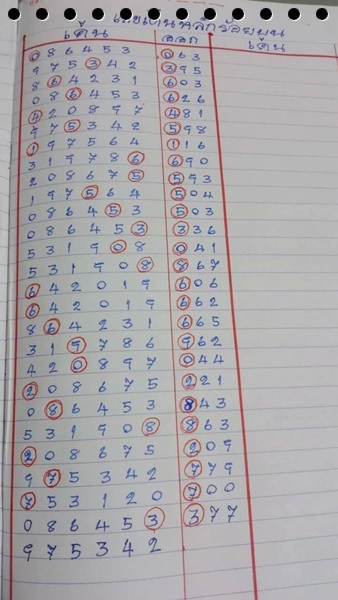 เลขเด่นหลักร้อยบน
เด่น ออก เด่น
086453 063
975342 395
864231 603
086453 626
420897 481
975342 598
197564 116
319786 690
208675 593
197564 504
086453 503
086453 336
531908 041
531908 867
642019 606
642019 662
864231 665
319786 962
420897 044
208675 221
086453 843
531908 863
208675 209
975342 779
753120 700
086453 377
975342